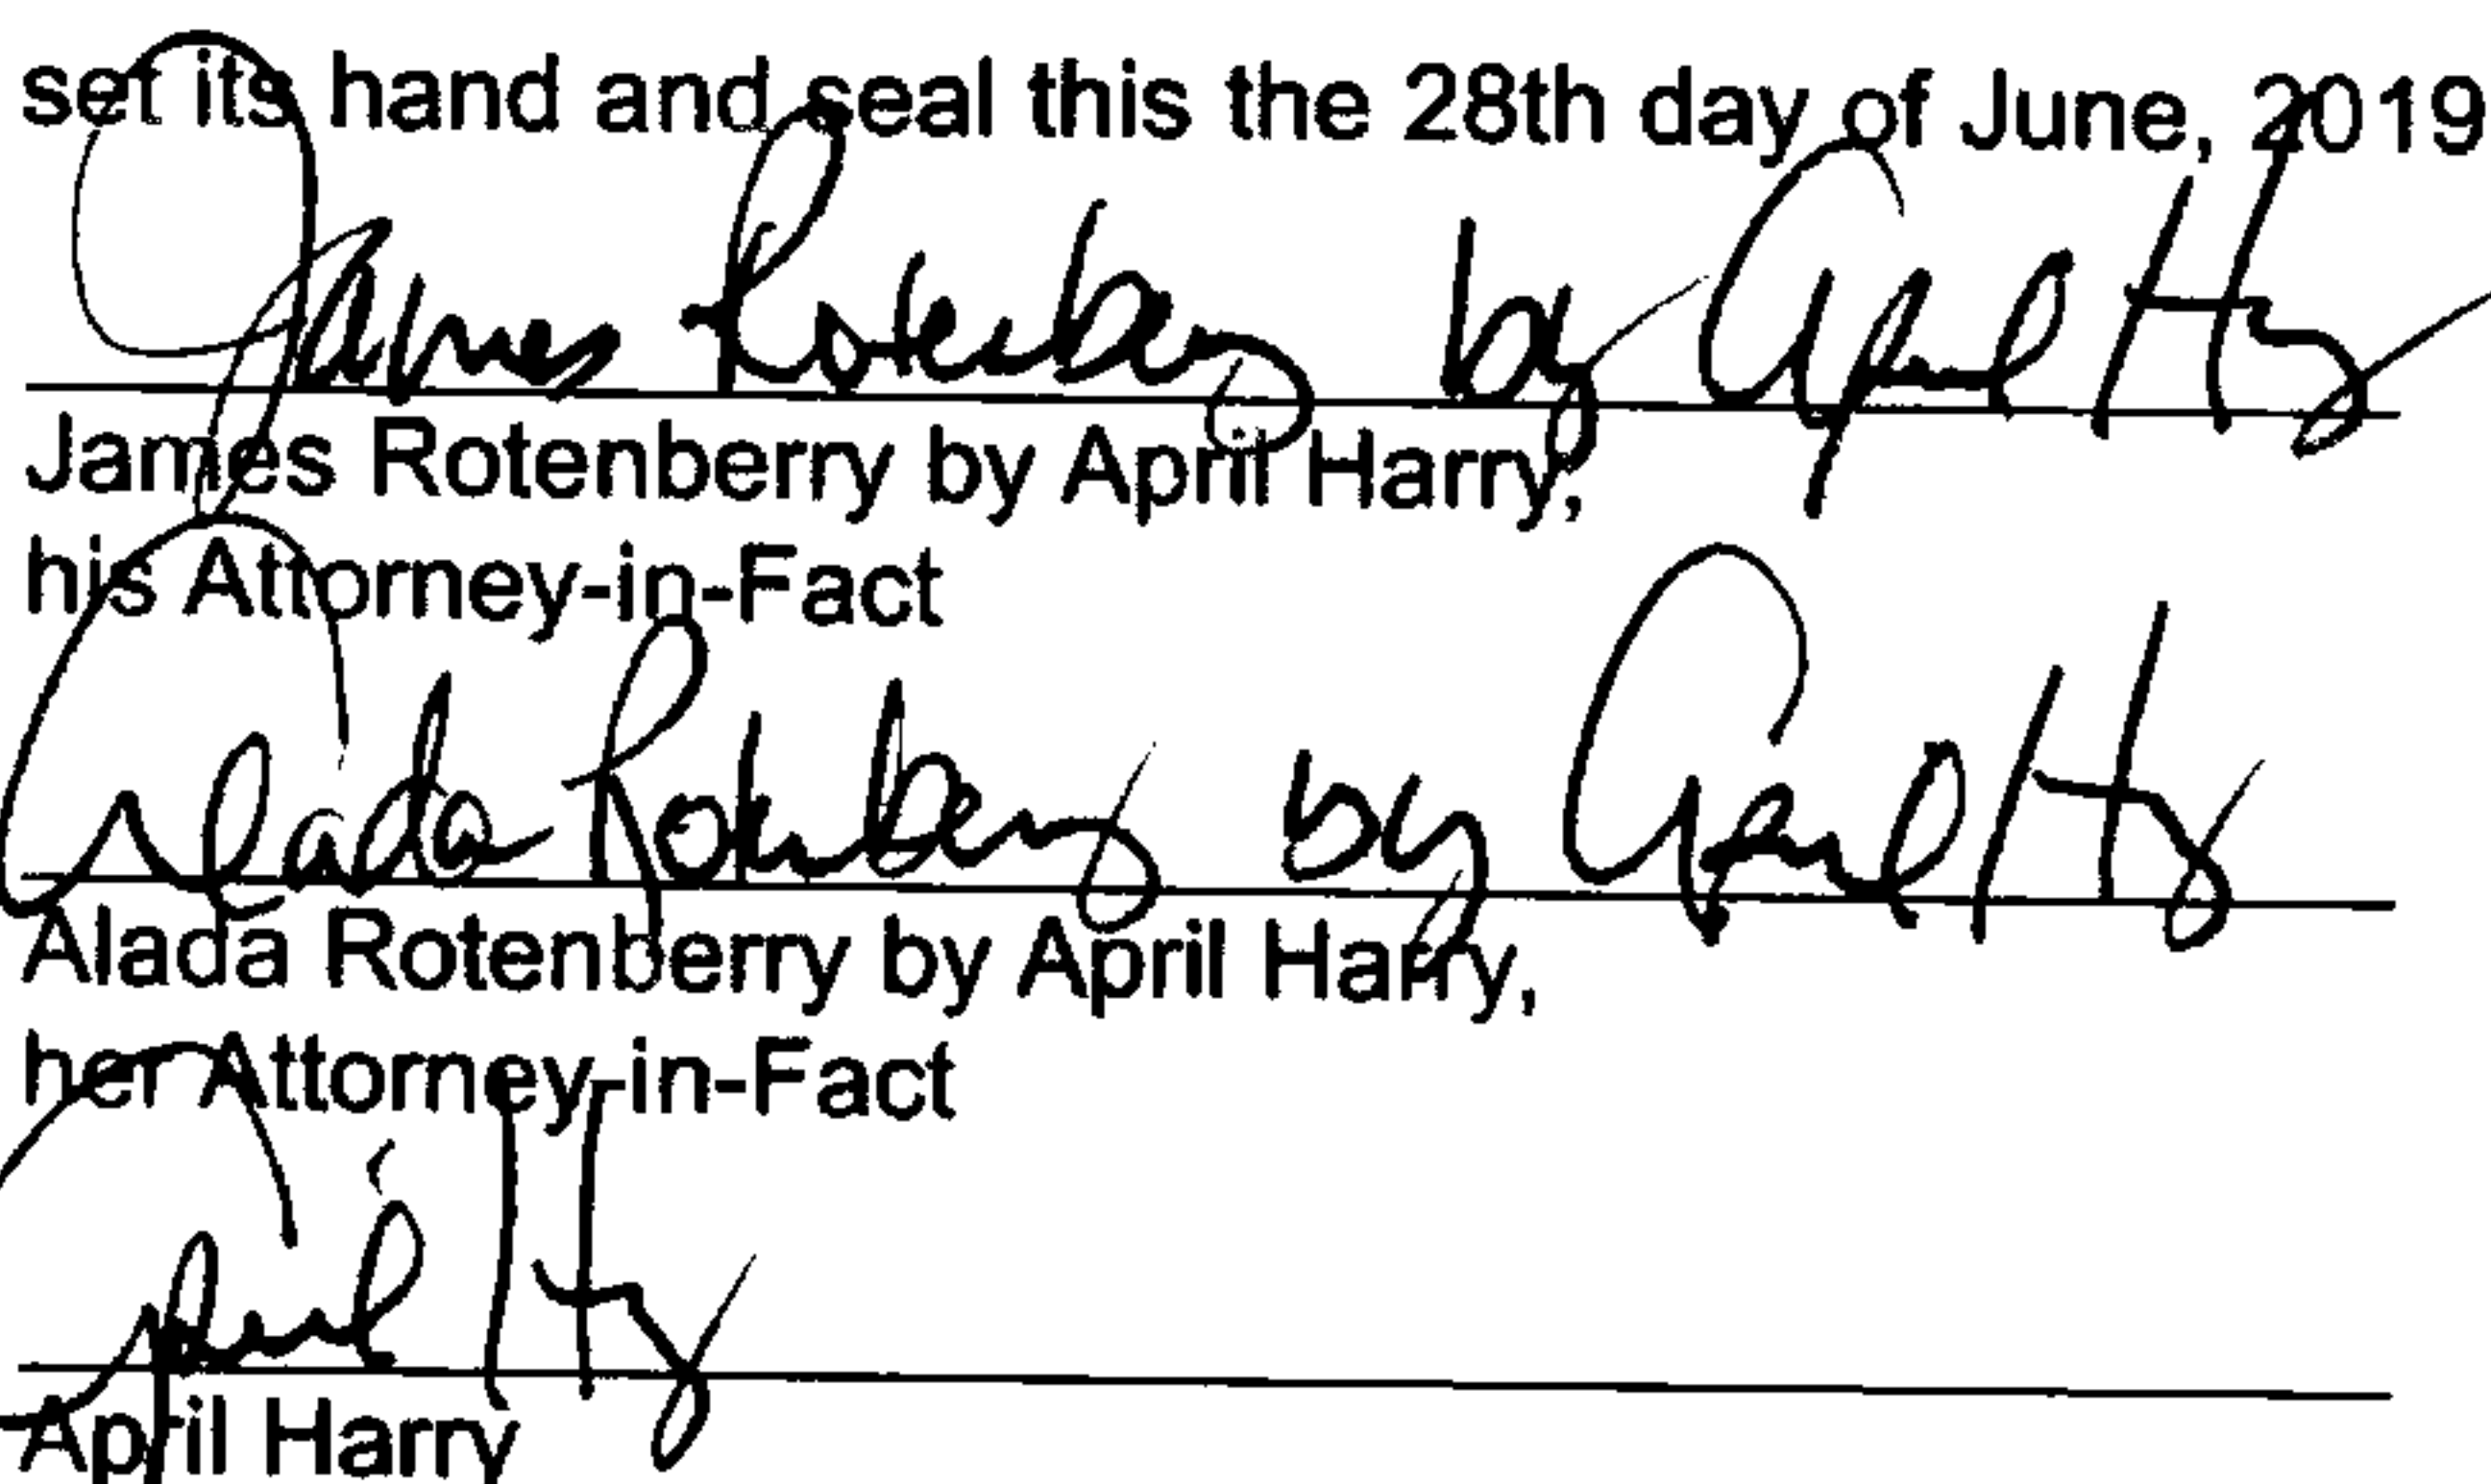 set its hand and seal this the 28th day of June, 2019
James Rotenberry by April Harry
James Rotenberry by April Harry,
his Attorney-in-Fact
Alada Rotenberry by April Harry
Alada Rotenberry by April Harry,
her Attorney-in-Fact
April Harry
April Harry